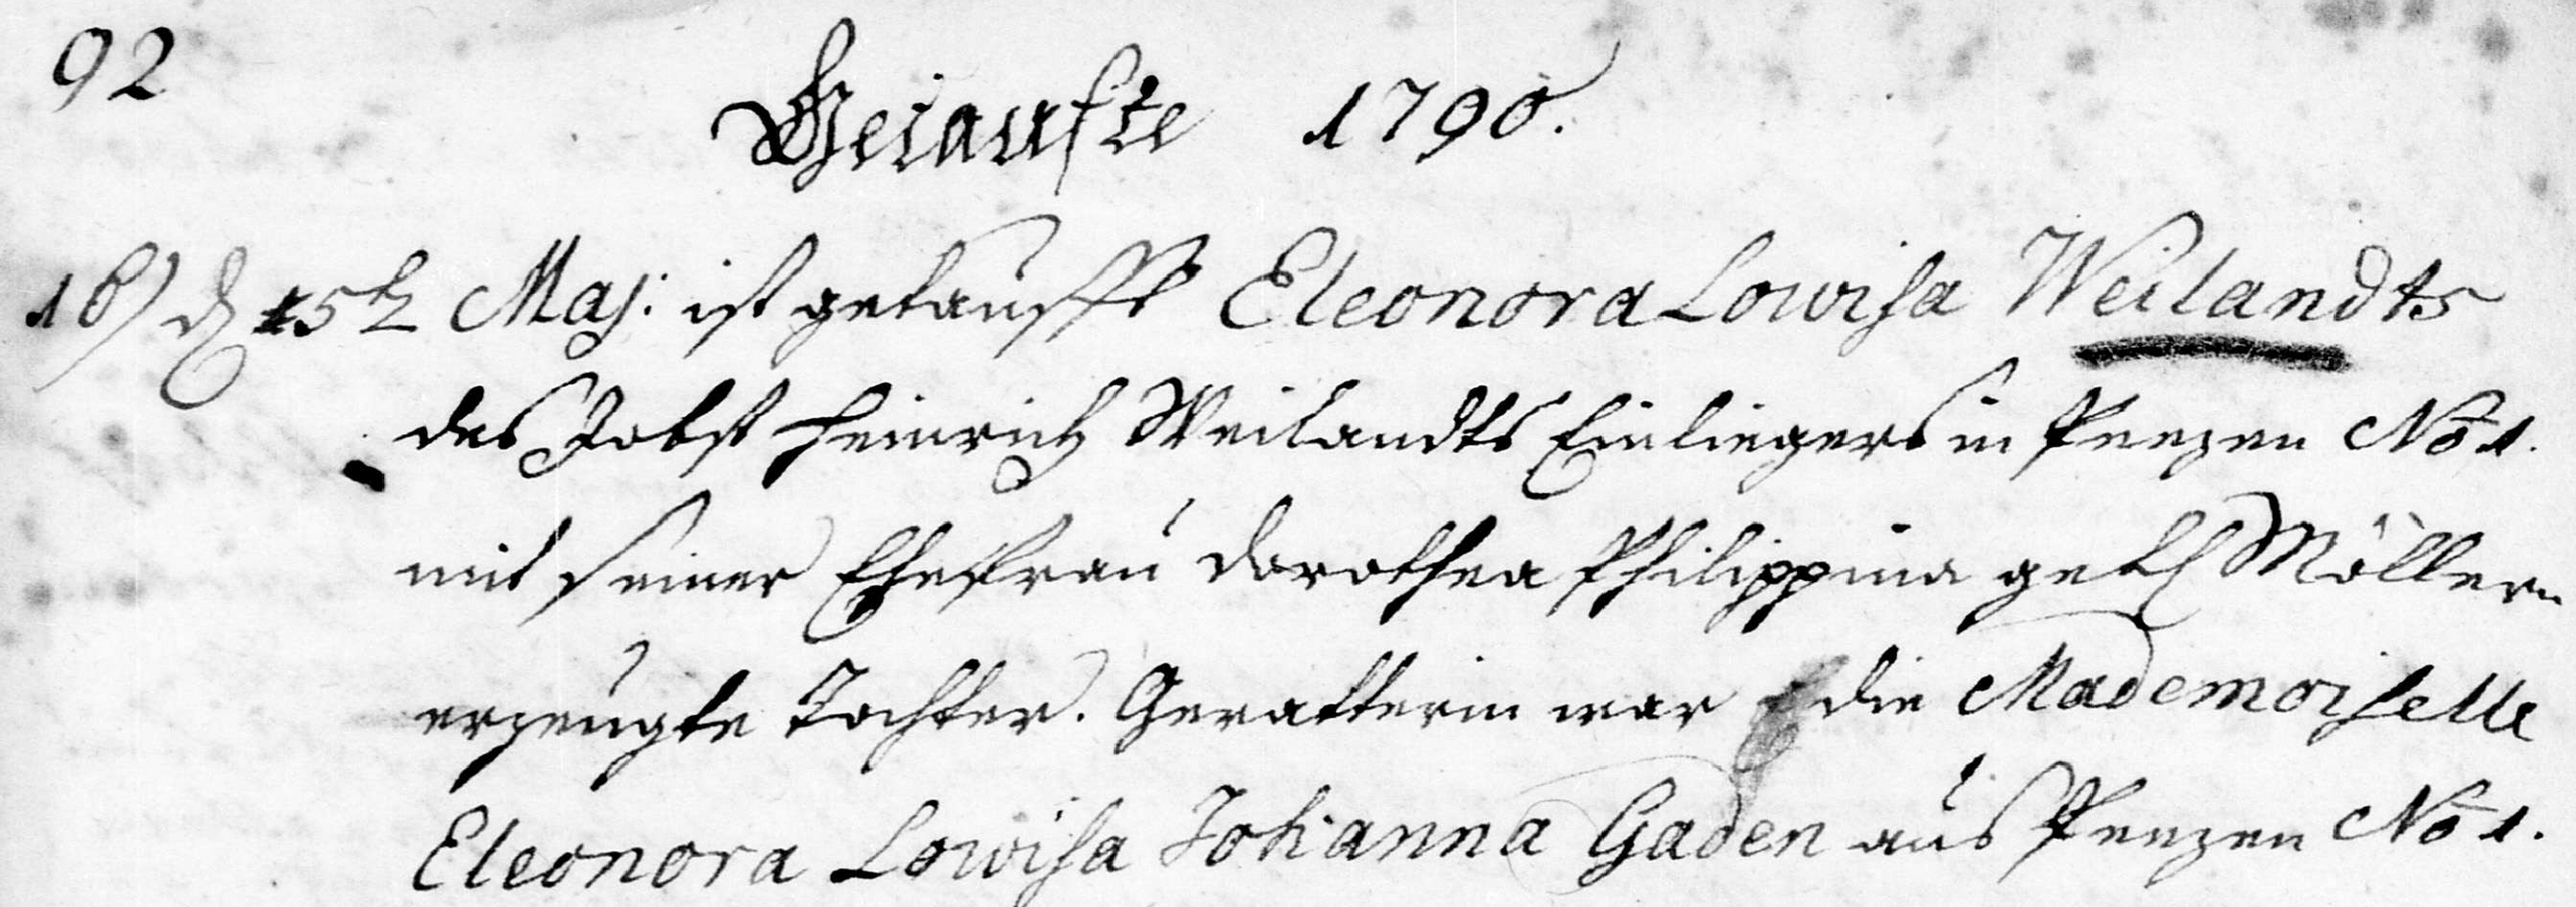 92
Getaufte 1790.
18) d 15t Maj: ist getaufft Eleonora Lowisa Weilandts
des Jobst Heinrich Weilandts Einliegers in Peezen No 1.
mit seiner Ehefrau Dorothea Philippina geb Möllern
erzeugte Tochter. Gevatterin war die Mademoiselle
Eleonora Lowisa Johanna Gaden aus Peezen No 1.